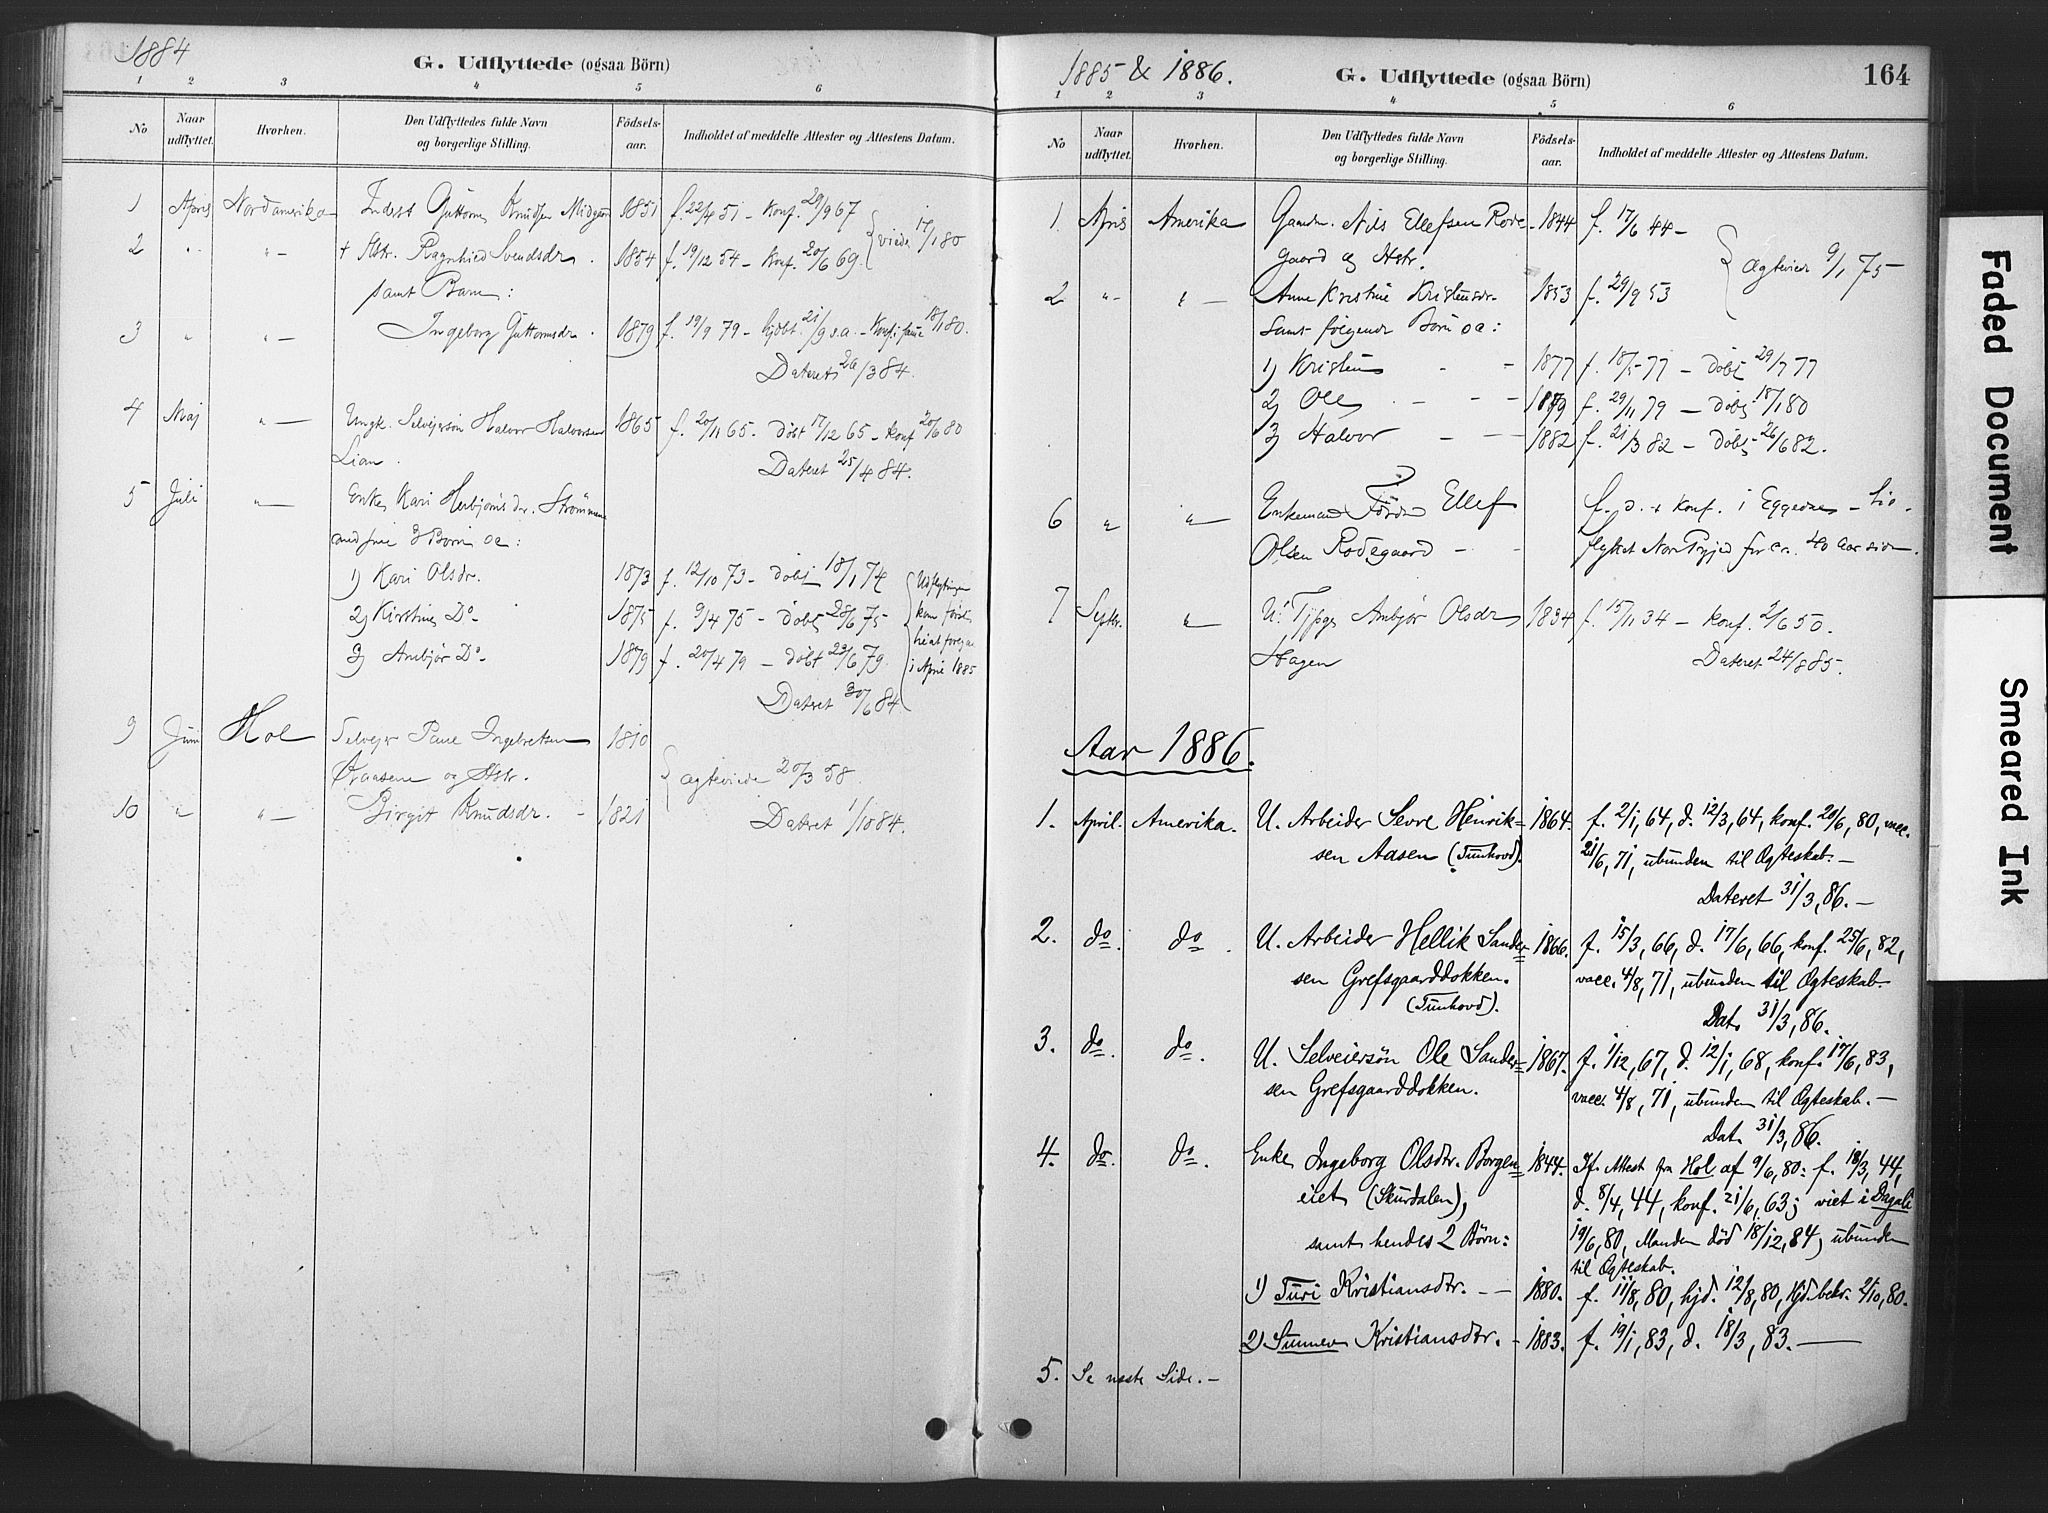 1884
G. Udflyttede (ogsaa Börn)
1 2 3 4 5 6
No
Naar udflyttet.
Hvorhen.
Den Udflyttedes fulde Navn og borgerlige Stilling.
Födsels-aar.
Indholdet af meddelte Attester og Attestens Datum.
1 April Nordamerika Inderst Guttorm Knudsen 1851 f. 22/4 51 - Konf. 29/9 67
2 " " — + Hstr. Ragnhild Svendsdr. 1854 f. 19/12 54 - Konf. 20/6 69. viede 17/1 80
samt Barn:
3 " " — Ingeborg Guttormsdr. 1879 f. 19/9 79 - hjdbt 21/9 s.a. - 18/1 80.
Dateret 28/3 84.
4 Maj " — Ungk. Selvejersøn Halvor Halvorsen 1865 f. 20/11 65. døbt 17/12 65 - konf 20/6 80
Lian.
Dateret 25/4 84.
5 Juli " — Enke Kari Herbjørnsdr. Strømmen
med sine 3 Børn oa:
1) Kari Olsdr. 1873 f. 12/10 73 - døbt 18/1 74
2) Kirstine Do 1875 f. 9/4 75 - døbt 28/6 75
3) Ambjør Do - 1879 f. 20/4 79 - døbt 22/6 79.
Udflytningen kom først i April 1885
Dateret 30/6 84.
9 Juni Hol Selvejer Paul Ingebretsen 1810
Øraasen og Hstr.
ægteviede 20/3 58.
10 " " — Birgit Knudsdr. - 1821 Dateret 1/10 84.
1885 & 1886.
G. Udflyttede (ogsaa Börn)
164
1 2 3 4 5 6
No
Naar udflyttet.
Hvorhen.
Den Udflyttedes fulde Navn og borgerlige Stilling.
Födsels-aar.
Indholdet af meddelte Attester og Attestens Datum.
1. April Amerika Gaardm. Nils Ellefsen Rode- 1844 f. 17/6 44 -
gaard og Hstr.
ægteviede 9/1 75
2 " - " — Anne Kristine Kristensdr. 1853 f. 29/9 53
samt følgende Børn oa:
1) Kristen - - 1877 f. 18/5 77 - døbt 29/7 77
2) Ole - - - 1879 f. 29/11 79 - døbt 18/1 80
3) Halvor - - - 1882 f. 21/3 82 - døbt 26/6 82.
6 " " — Enkemand Ellef f. d. + konf. i Eggedal -
Olsen Rodegaard - - flyttet for ca. 40 Aar siden.
7 Septbr. " — U. Ambjør Olsdr 1834 f. 15/11 34 - konf. 2/6 50.
Hagen
Dateret 24/8 85.
Aar 1886.
1. April. Amerika. U. Arbeider Sevre Henrik= 1864. f. 2/1, 64, d. 12/3, 64, konf. 20/6, 80, vacc.
sen Aasen (Tunhovd). 21/6, 71, ubunden til Ægteskab. -
Dateret 31/3, 86. -
2. do. do. U. Arbeider Hellik Sander= 1866. f. 15/3, 66, d. 17/6, 66, konf. 25/6, 82,
sen Grefsgaarddokken. vacc. 4/8, 71, ubunden til Ægteskab.
(Tunhovd).
Dat. 31/3, 86.
3. do. do. U. Selveiersøn Ole Sander= 1867. f. 1/12, 67, d. 12/1, 68, konf. 17/6, 83,
sen Grefsgaarddokken. vacc. 4/8, 71, ubunden til Ægteskab. -
Dat. 31/3, 86.
4. do. do. Enke Ingeborg Olsdtr. Borgen= 1844. If. Attest fra Hol af 9/6, 80: f. 18/3, 44,
eiet (Skurdalen), d. 8/4, 44, konf. 21/6, 63; viet i Dagali
samt hendes 2 Børn: 19/6, 80, Manden død 18/12, 84, ubunden
til Ægteskab.
1) Turi Kristiansdtr. - - 1880. f. 11/8, 80, hjd. 12/8, 80, Hjd. bekr. 2/10, 80.
2) Sunnev Kristiansdtr. - 1883. f. 19/1, 83, d. 18/3, 83. —
5. Se næste Side. -
Faded Document
Smeared Ink